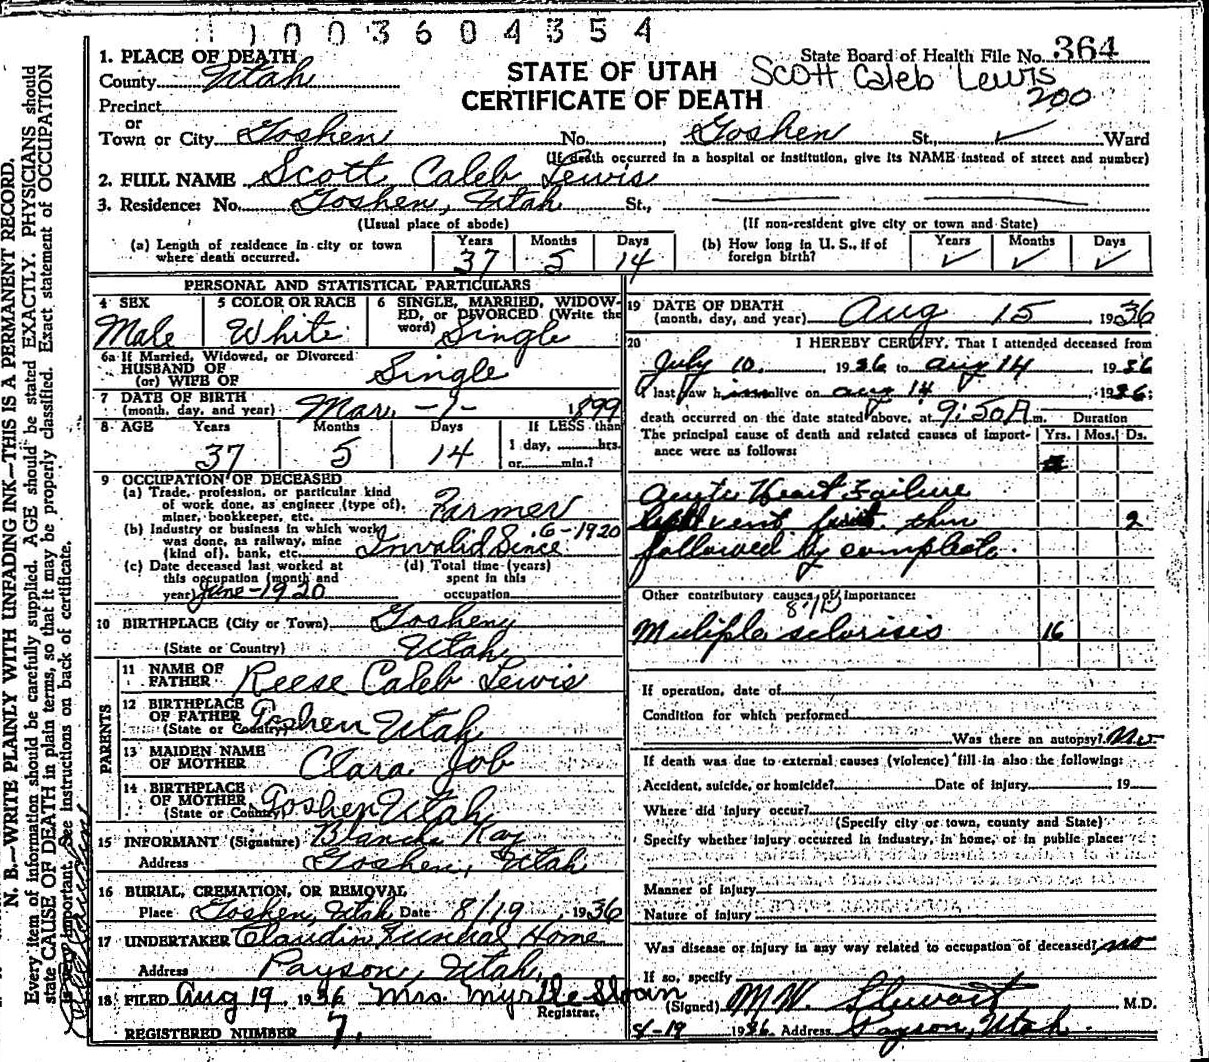 1003604354
1. PLACE OF DEATH
State Board of Health File No. 364
County Utah
STATE OF UTAH
Scott Caleb Lewis
200
Precinct
CERTIFICATE OF DEATH
or
Town or City Goshen No. , Goshen St., ✓ Ward
(If death occurred in a hospital or institution, give its NAME instead of street and number)
2. FULL NAME Scott Caleb Lewis
3. Residence: No. Goshen, Utah St.,
(Usual place of abode) (If non-resident give city or town and State)
(a) Length of residence in city or town where death occurred. Years 37 Months 5 Days 14
(b) How long in U. S., if of foreign birth? Years ✓ Months ✓ Days ✓
PERSONAL AND STATISTICAL PARTICULARS
4 SEX Male
5 COLOR OR RACE White
6 SINGLE, MARRIED, WIDOWED, or DIVORCED (Write the word) Single
6a If Married, Widowed, or Divorced
HUSBAND OF
(or) WIFE OF Single
7 DATE OF BIRTH
(month, day, and year) Mar. - 1 - 1899
8 AGE Years 37 Months 5 Days 14
If LESS than
1 day, hrs.
or min.?
9 OCCUPATION OF DECEASED
(a) Trade, profession, or particular kind
of work done, as engineer (type of),
miner, bookkeeper, etc. Farmer
(b) Industry or business in which work
was done, as railway, mine
(kind of), bank, etc. Invalid Since 6-1920
(c) Date deceased last worked at
this occupation (month and
year) June-1920
(d) Total time (years)
spent in this
occupation
10 BIRTHPLACE (City or Town) Goshen
(State or Country) Utah
PARENTS
11 NAME OF
FATHER Reese Caleb Lewis
12 BIRTHPLACE
OF FATHER
(State or Country) Goshen Utah
13 MAIDEN NAME
OF MOTHER Clara Job
14 BIRTHPLACE
OF MOTHER
(State or Country) Goshen Utah
15 INFORMANT (Signature) Blanche Kay
Address Goshen, Utah
16 BURIAL, CREMATION, OR REMOVAL
Place Goshen, Utah Date 8/19, 1936
17 UNDERTAKER Claudin Funeral Home
Address Payson, Utah.
18 FILED Aug 19 1936 Mrs. Myrtle Sloan
Registrar.
REGISTERED NUMBER 7.
19 DATE OF DEATH
(month, day, and year) Aug 15, 1936
20 I HEREBY CERTIFY, That I attended deceased from
July 10. 1936 to Aug 14 1936
I last saw him alive on Aug 14 1936;
death occurred on the date stated above, at 9:50 A m. Duration
The principal cause of death and related causes of importance were as follows: Yrs. Mos. Ds.
Acute Heart Failure
left vent first then 2
followed by complete.
Other contributory causes of importance:
Multiple sclorisis 16
If operation, date of
Condition for which performed
Was there an autopsy? No
If death was due to external causes (violence) fill in also the following:
Accident, suicide, or homicide? Date of injury 19
Where did injury occur?
(Specify city or town, county and State)
Specify whether injury occurred in industry, in home, or in public place:
Manner of injury
Nature of injury
Was disease or injury in any way related to occupation of deceased? no
If so, specify
(Signed) M.W. Stewart M.D.
8/-19 1936 Address Payson, Utah.
N. B.—WRITE PLAINLY WITH UNFADING INK—THIS IS A PERMANENT RECORD.
Every item of information should be carefully supplied. AGE should be stated EXACTLY. PHYSICIANS should
state CAUSE OF DEATH in plain terms, so that it may be properly classified. Exact statement of OCCUPATION
is very important. See instructions on back of certificate.